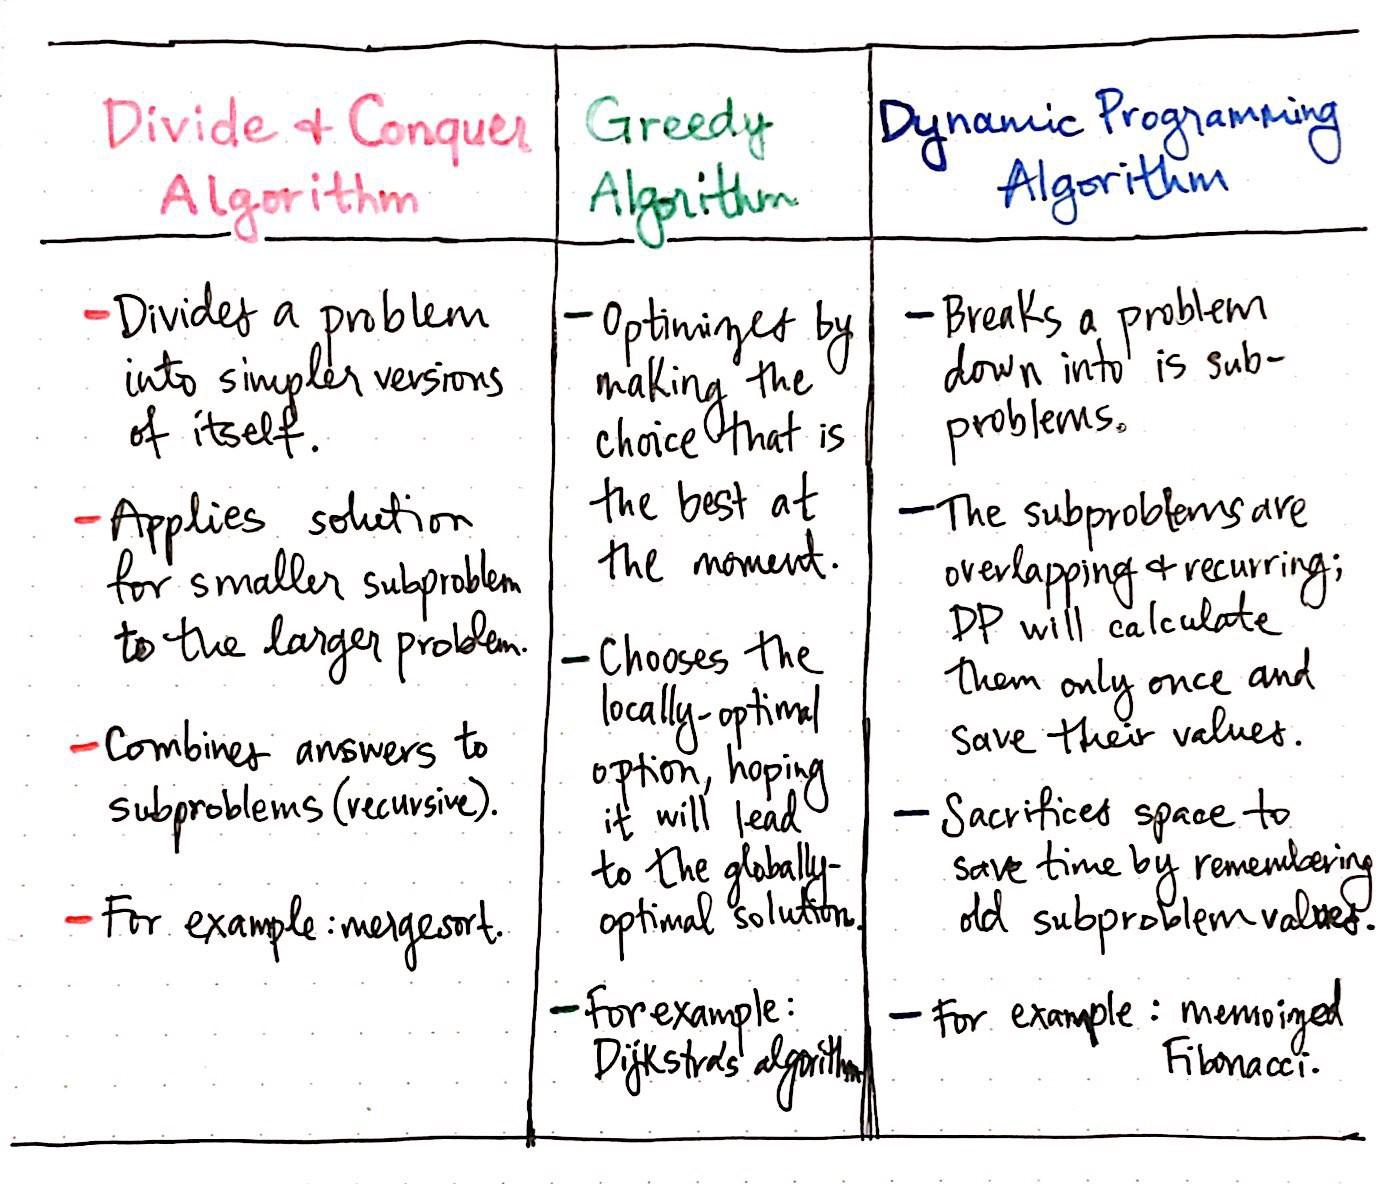 Divide & Conquer
Algorithm
- Divides a problem
into simpler versions
of itself.
- Applies solution
for smaller subproblem
to the larger problem.
- Combines answers to
subproblems (recursive).
- For example: mergesort.
Greedy
Algorithm
- Optimizes by
making the
choice that is
the best at
the moment.
- Chooses the
locally-optimal
option, hoping
it will lead
to the globally-
optimal solution.
- For example:
Dijkstra's algorithm
Dynamic Programming
Algorithm
- Breaks a problem
down into is sub-
problems.
- The subproblems are
overlapping & recurring;
DP will calculate
them only once and
save their values.
- Sacrifices space to
save time by remembering
old subproblem values.
- For example: memoized
Fibonacci.